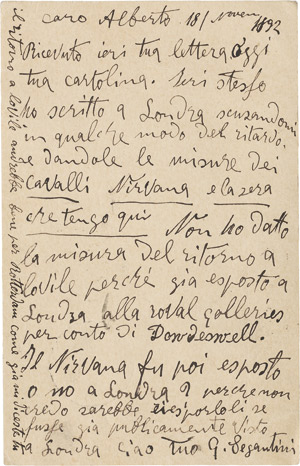 caro Alberto 18/ Novem 1892
Ricevuto ieri tua lettera oggi
tua cartolina. Ieri stesso
ho scritto a Londra scusandomi
in qualche modo del ritardo.
e dandole le misure dei
cavalli Nirvana e la zera
che tengo qui Non ho datto
la misura del ritorno a
lovile perché gia esposto a
Londra alla roval galleries
per conto di Dowdeswell.
Il Nirvana fu poi esposto
o no a Londra? perche non
credo sarebbe riesporloli se
fusse gia publicamente visto
a Londra ciao tuo G. Segantini
il ritorno a lovile andrebbe bene per Rotterdam come gia mi dicesti tu